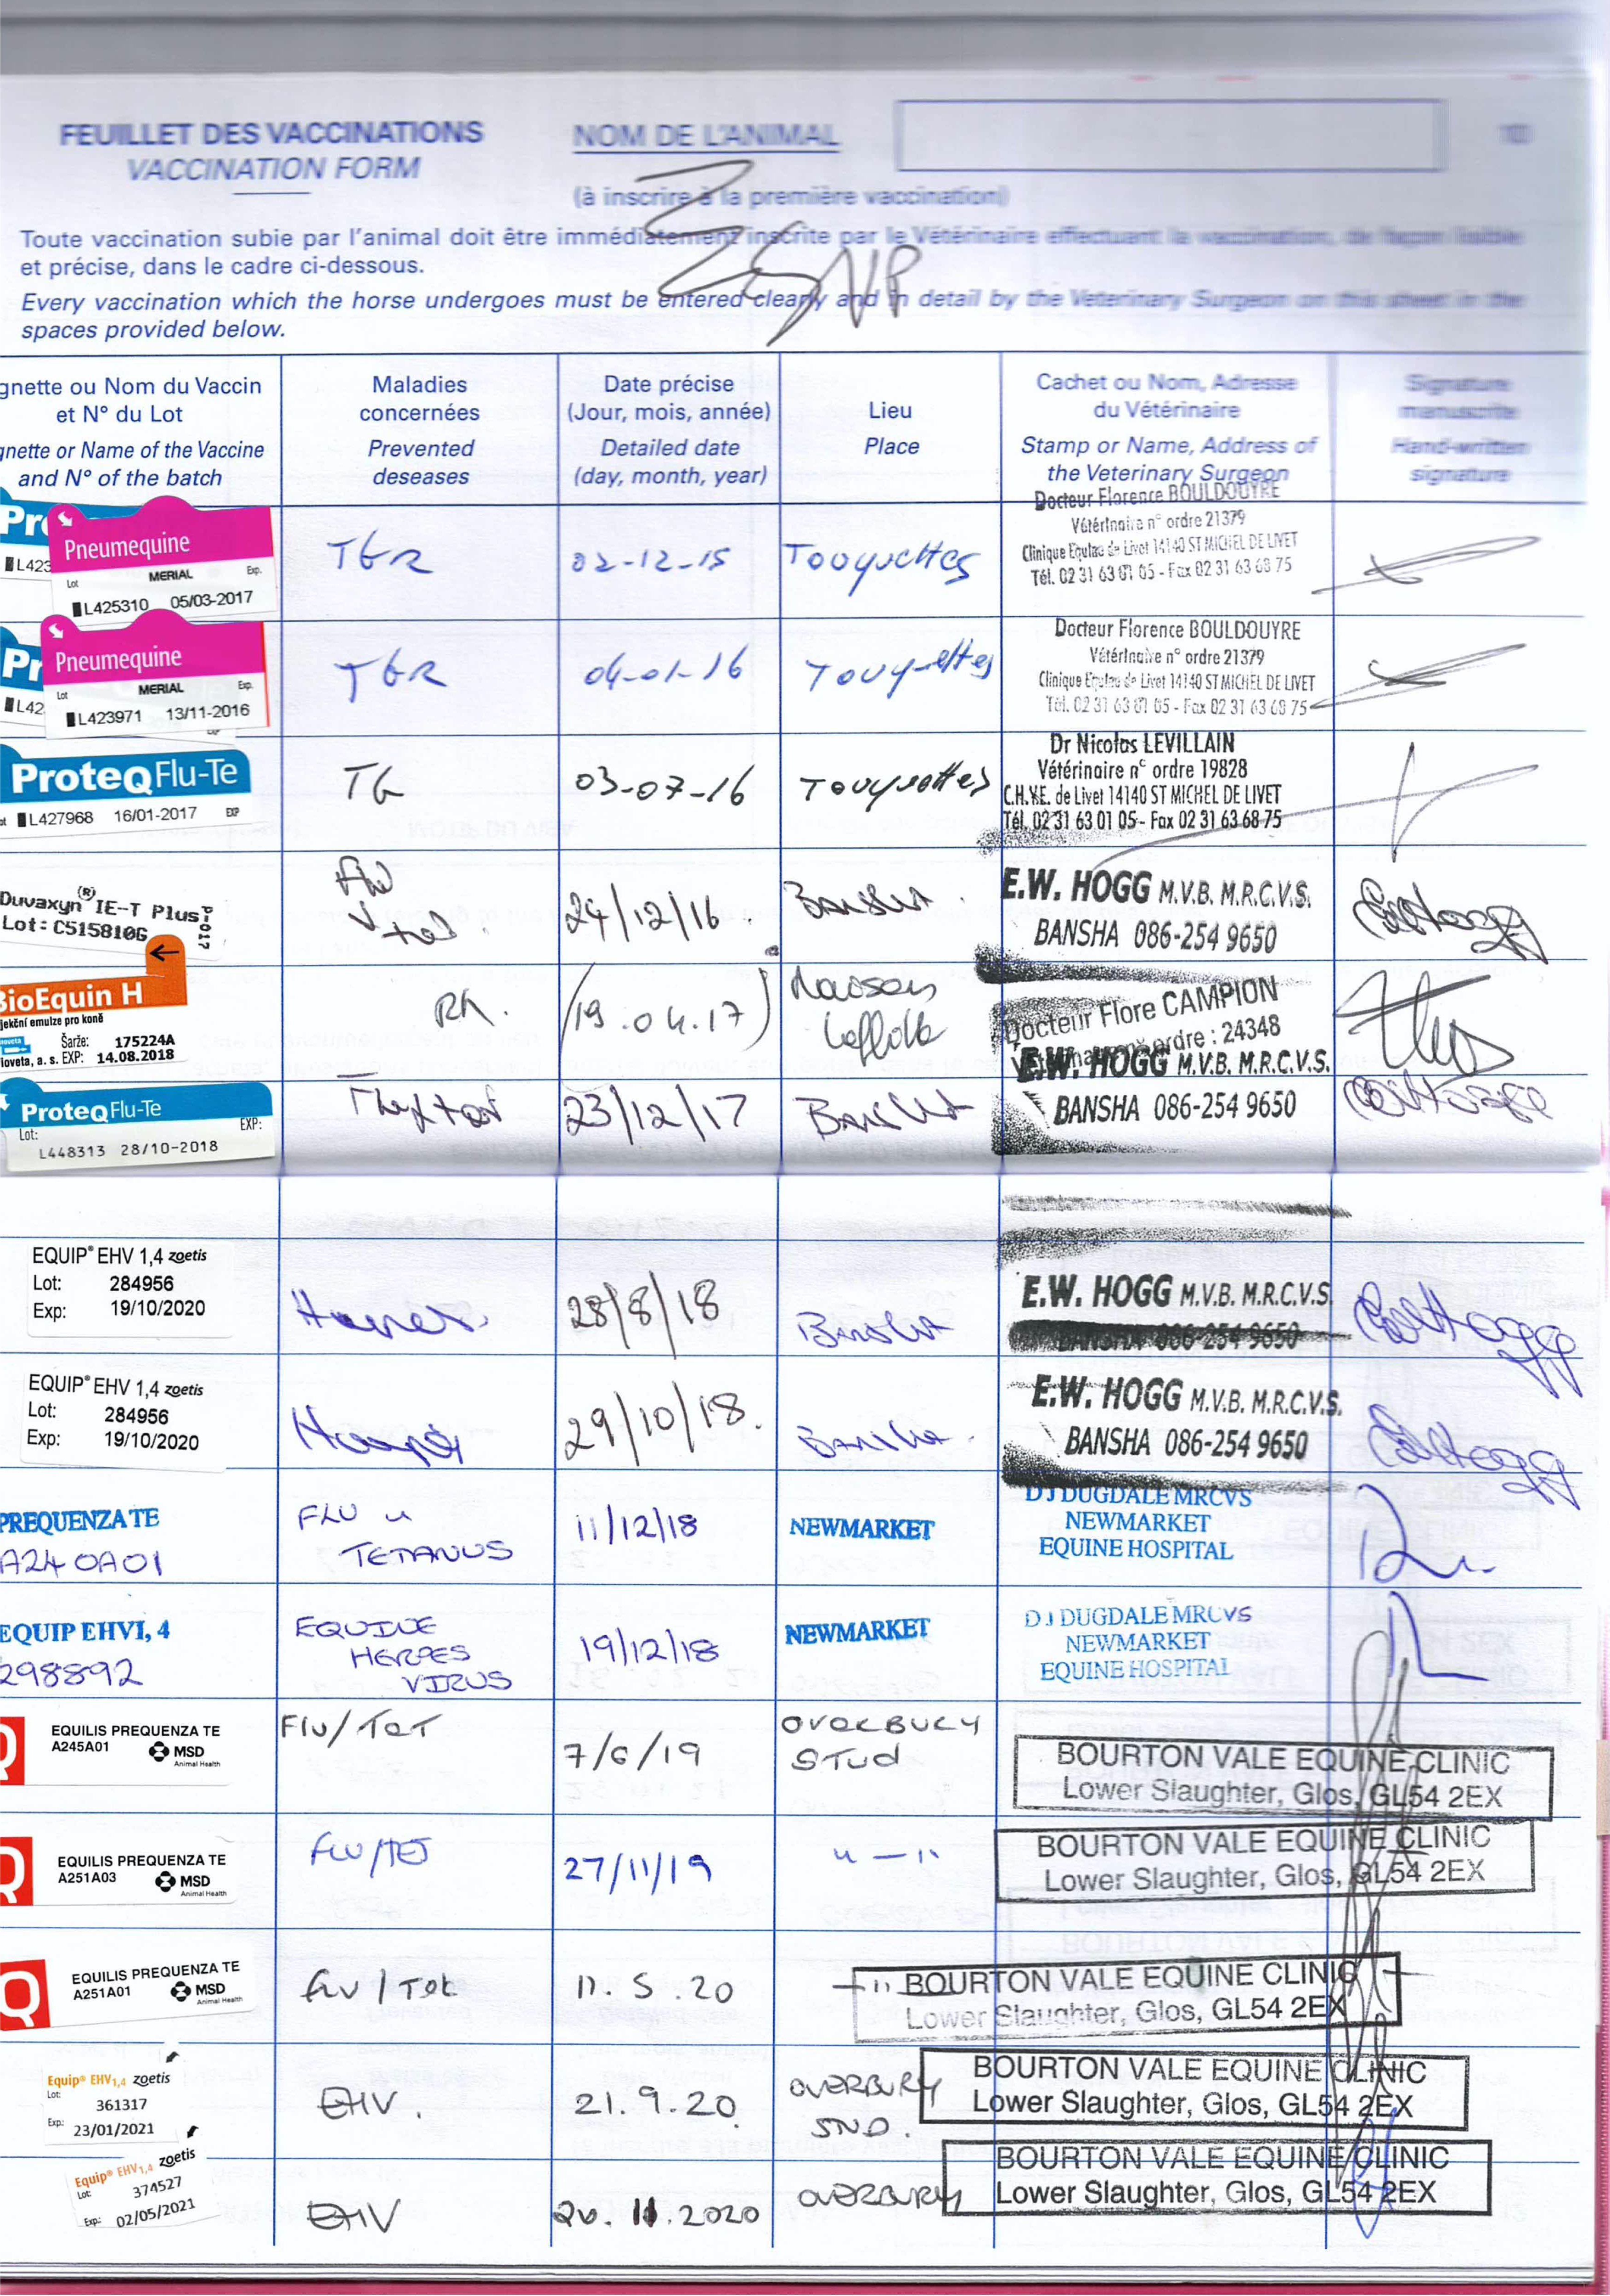 FEUILLET DES VACCINATIONS
VACCINATION FORM
NOM DE L'ANIMAL
(à inscrire à la première vaccination)
Toute vaccination subie par l'animal doit être immédiatement inscrite par le Vétérinaire effectuant la vaccination, de façon lisible
et précise, dans le cadre ci-dessous.
Every vaccination which the horse undergoes must be entered clearly and in detail by the Veterinary Surgeon on this sheet in the
spaces provided below.
gnette ou Nom du Vaccin
et N° du Lot
gnette or Name of the Vaccine
and N° of the batch
Maladies
concernées
Prevented
deseases
Date précise
(Jour, mois, année)
Detailed date
(day, month, year)
Lieu
Place
Cachet ou Nom, Adresse
du Vétérinaire
Stamp or Name, Address of
the Veterinary Surgeon
Signature
manuscrite
Hand-written
signature
Pneumequine
Lot MERIAL Exp.
L425310 05/03-2017
TGR
02-12-15
Touquettes
Docteur Florence BOULDOUYRE
Vétérinaire n° ordre 21379
Clinique Equine de Livet 14140 ST MICHEL DE LIVET
Tél. 02 31 63 01 05 - Fax 02 31 63 68 75
Pneumequine
Lot MERIAL Exp.
L423971 13/11-2016
TGR
04-01-16
Touquettes
Docteur Florence BOULDOUYRE
Vétérinaire n° ordre 21379
Clinique Equine de Livet 14140 ST MICHEL DE LIVET
Tél. 02 31 63 01 05 - Fax 02 31 63 68 75
ProteqFlu-Te
L427968 16/01-2017 EXP
TG
03-07-16
Touquettes
Dr Nicolas LEVILLAIN
Vétérinaire n° ordre 19828
C.H.V.E. de Livet 14140 ST MICHEL DE LIVET
Tél. 02 31 63 01 05 - Fax 02 31 63 68 75
Duvaxyn (R) IE-T Plus
Lot: C515810G
Flu
tet
24/12/16
Bansha
E.W. HOGG M.V.B. M.R.C.V.S.
BANSHA 086-254 9650
BioEquin H
jekční emulze pro koně
Šarže: 175224A
ioveta, a. s. EXP: 14.08.2018
Rh.
19.04.17
Maisons
Laffitte
Docteur Flore CAMPION
ordre : 24348
ProteqFlu-Te
Lot: EXP:
L448313 28/10-2018
23/12/17
Bansha
E.W. HOGG M.V.B. M.R.C.V.S.
BANSHA 086-254 9650
EQUIP® EHV 1,4 zoetis
Lot: 284956
Exp: 19/10/2020
28/8/18
Bansha
E.W. HOGG M.V.B. M.R.C.V.S.
BANSHA 086-254 9650
EQUIP® EHV 1,4 zoetis
Lot: 284956
Exp: 19/10/2020
29/10/18.
Bansha
E.W. HOGG M.V.B. M.R.C.V.S.
BANSHA 086-254 9650
PREQUENZA TE
A240A01
FLU
TETANUS
11/12/18
NEWMARKET
D J DUGDALE MRCVS
NEWMARKET
EQUINE HOSPITAL
EQUIP EHV1, 4
298892
EQUINE
HERPES
VIRUS
19/12/18
NEWMARKET
D J DUGDALE MRCVS
NEWMARKET
EQUINE HOSPITAL
EQUILIS PREQUENZA TE
A245A01
MSD
Animal Health
Flu/Tet
7/6/19
OVERBURY
STUD
BOURTON VALE EQUINE CLINIC
Lower Slaughter, Glos, GL54 2EX
EQUILIS PREQUENZA TE
A251A03
MSD
Animal Health
FLU/TET
27/11/19
" — "
BOURTON VALE EQUINE CLINIC
Lower Slaughter, Glos, GL54 2EX
EQUILIS PREQUENZA TE
A251A01
MSD
Animal Health
flu / Tet
11.5.20
BOURTON VALE EQUINE CLINIC
Lower Slaughter, Glos, GL54 2EX
Equip® EHV1,4 zoetis
Lot: 361317
Exp: 23/01/2021
EHV.
21.9.20
OVERBURY
STUD.
BOURTON VALE EQUINE CLINIC
Lower Slaughter, Glos, GL54 2EX
Equip® EHV1,4 zoetis
Lot: 374527
Exp: 02/05/2021
EHV
20.11.2020
OVERBURY
BOURTON VALE EQUINE CLINIC
Lower Slaughter, Glos, GL54 2EX